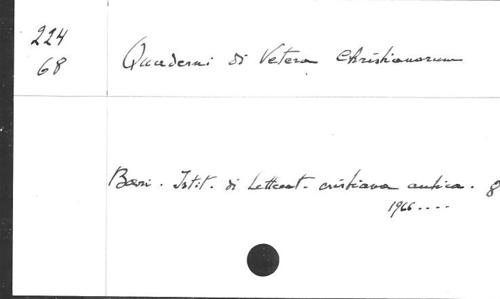 224
68
Quaderni di Vetera Christianorum
Bari. Istit. di Letterat. cristiana antica. 8
1966....